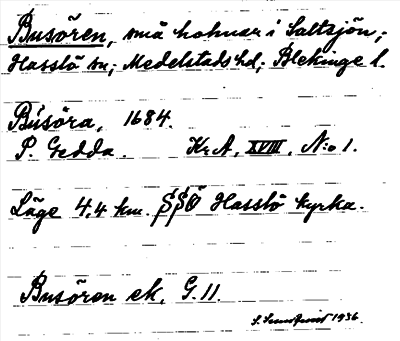 Busören, små holmar i Saltsjön;
Hasslö sn; Medelstads hd; Blekinge l.
Busöra, 1684.
P. Gedda. Kr.A, XVIII, N:o 1.
Läge 4,4 km. SSÖ Hasslö kyrka.
Busören ek. G.11.
1936.